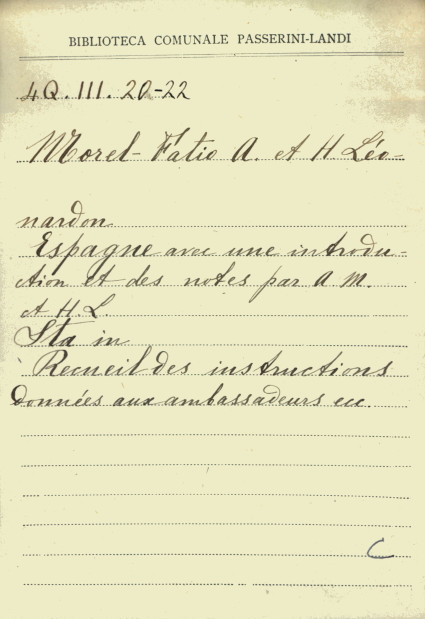 BIBLIOTECA COMUNALE PASSERINI-LANDI
4Q.III.20-22
Morel-Fatio A. et H Léo-
nardon
Espagne avec une introdu-
ction et des notes par A M.
et H.L.
Sta in
Recueil des instructions
données aux ambassadeurs ecc.
C